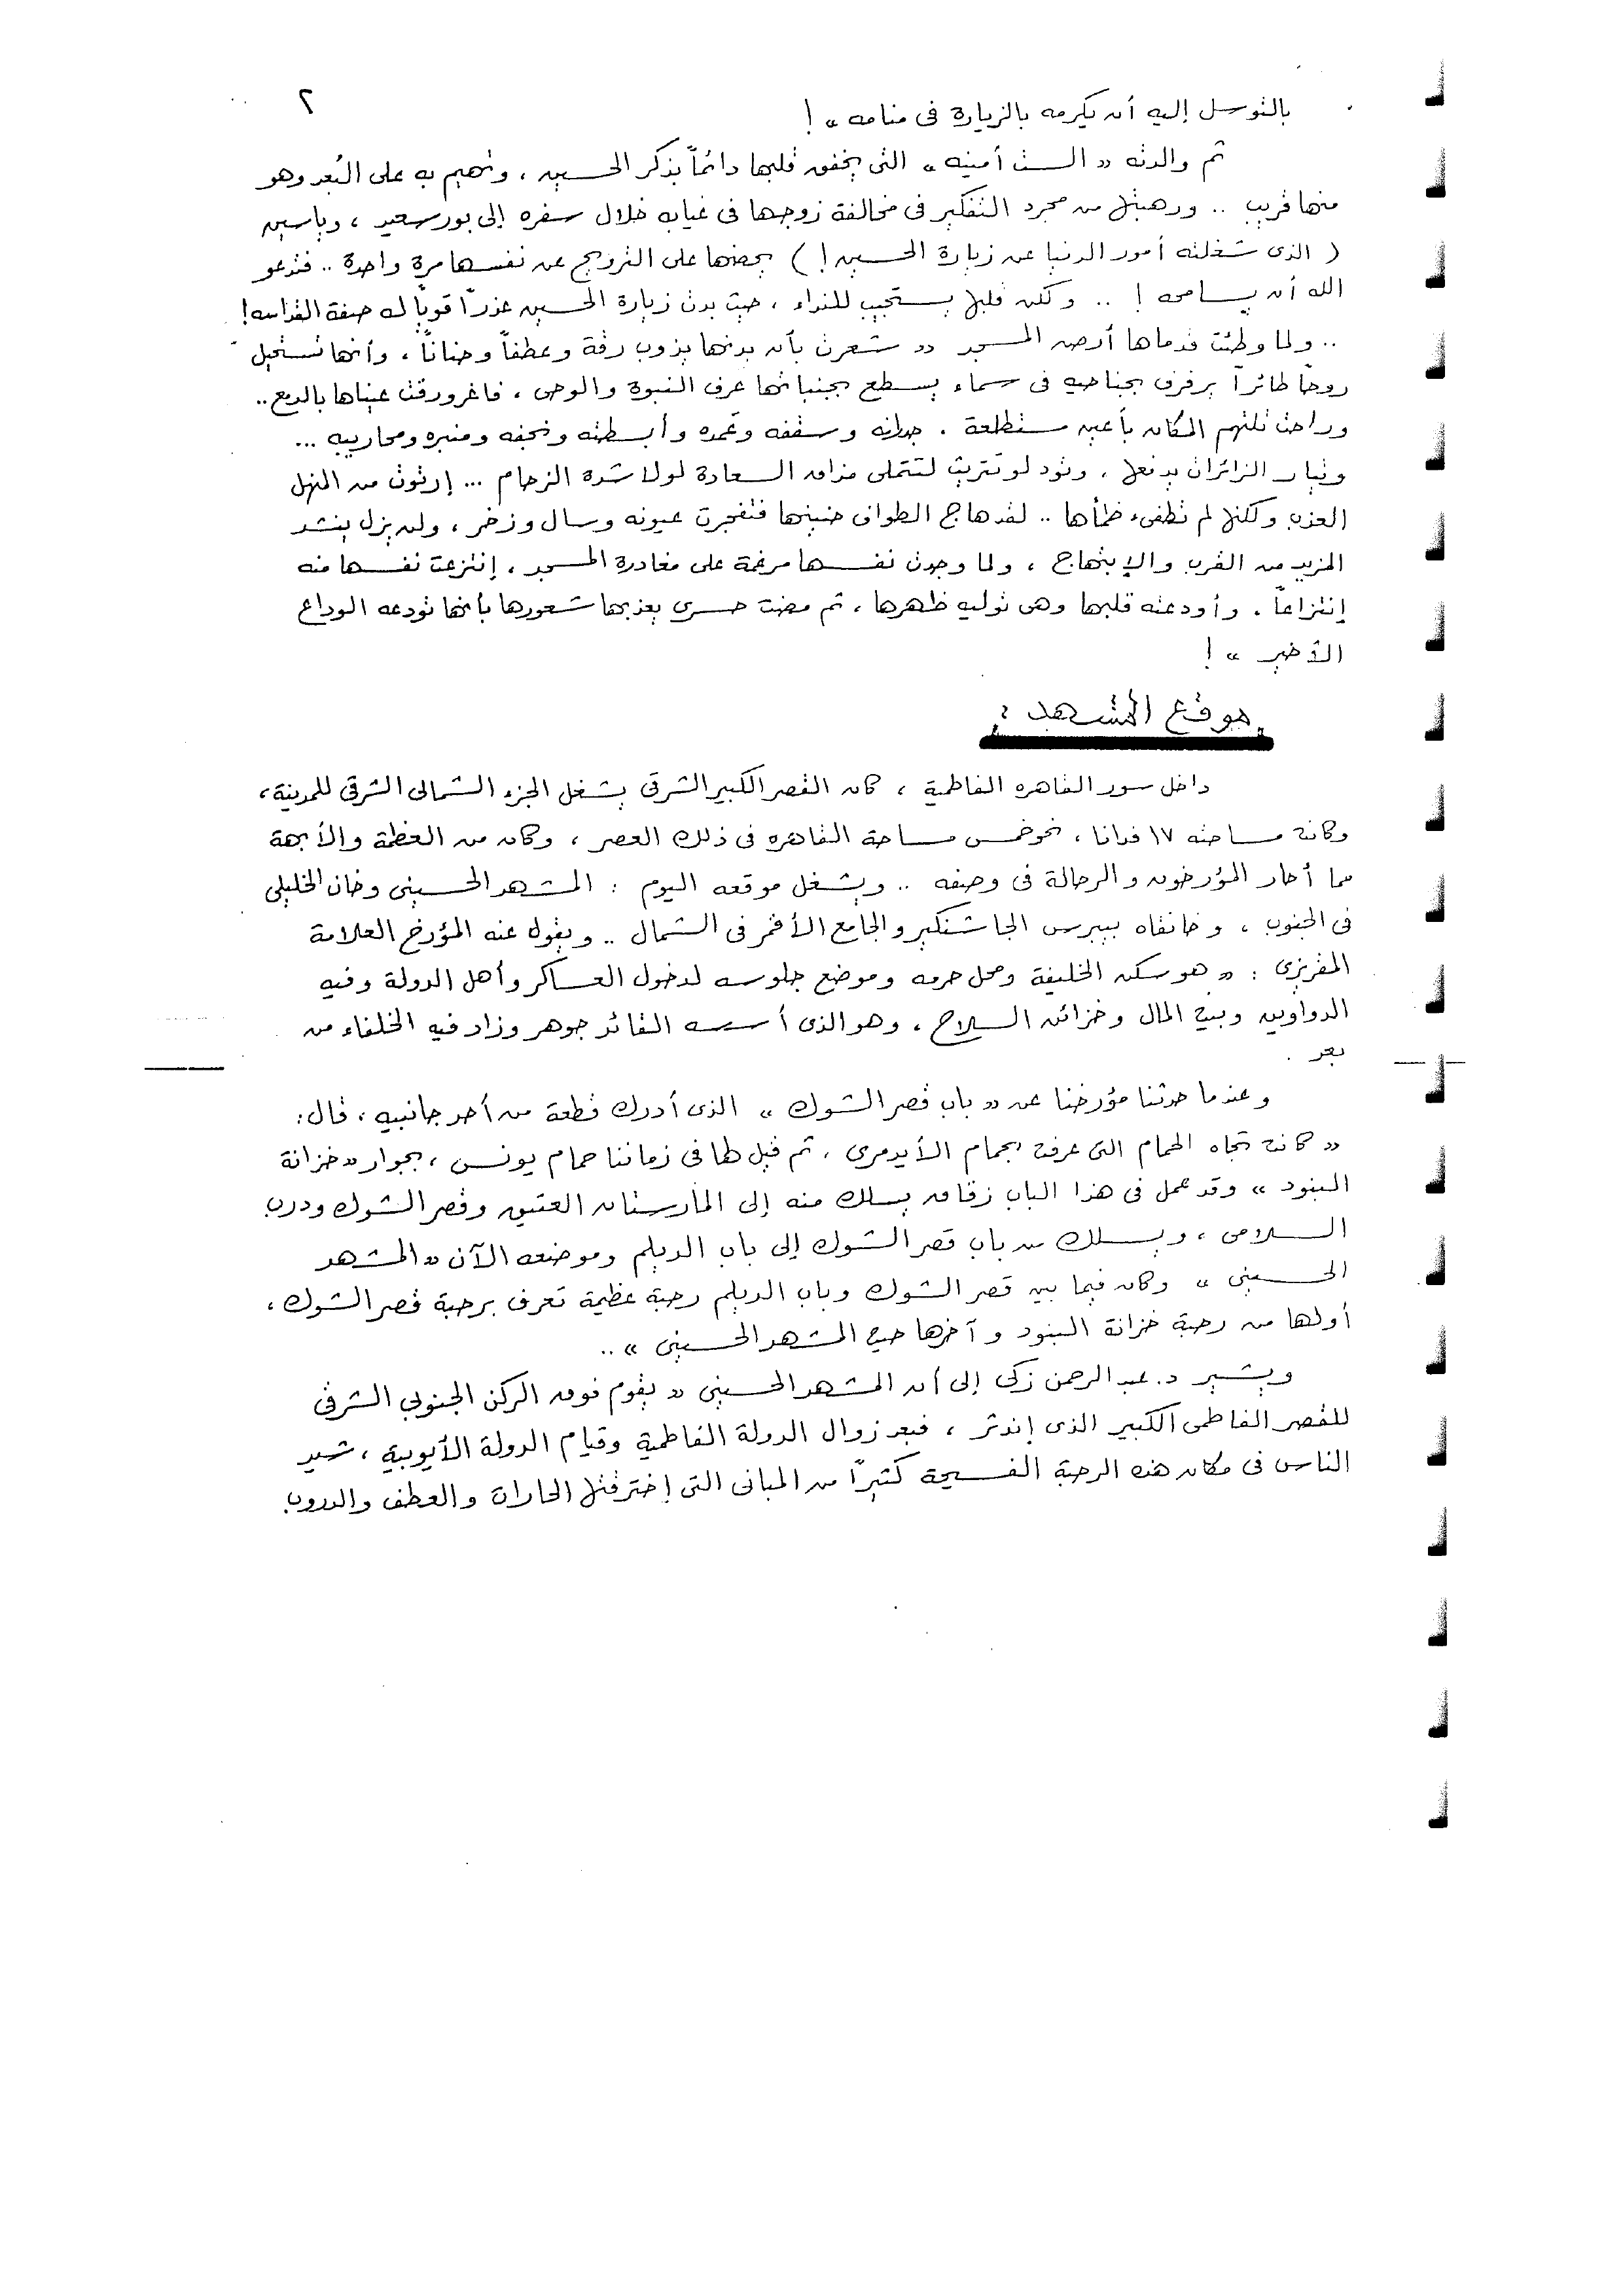 ٢
بالتوسل إليه أن يكرمه بالزيارة فى منامه » !
ثم والدته « الست أمينه » التى يخفق قلبها دائماً بذكر الحسين ، وتهيم به على البُعد وهو
منها قريب .. ورهبتها من مجرد التفكير فى مخالفة زوجها فى غيابه خلال سفره إلى بور سعيد ، وياسين
( الذى شغلته أمور الدنيا عن زيارة الحسين ! ) يحضها على الترويح عن نفسها مرة واحدة .. فتدعو
الله أن يسامحه ! .. ولكن قلبها يستجيب للنداء ، حيث بدت زيارة الحسين عذراً قوياً له صفة القداسه !
.. ولما وطئت قدماها أرض المسجد « شعرت بأن بدنها يذوب رقة وعطفاً وحناناً ، وأنها تستحيل
روحاً طائراً يرفرف بجناحيه فى سماء يسطع بجنباتها عرف النبوة والوحى ، فاغرورقت عيناها بالدمع ..
وراحت تلتهم المكان بأعين مستطلعة . جدرانه وسقفه وعُمده وأبسطته ونجفه ومنبره ومحاريبه ...
وتيار الزائرات يدفعها ، وتود لو تتريث لتتملى مذاق السعادة لولا شدة الزحام ... إرتوت من المنهل
العذب ولكنها لم تطفىء ظمأها .. لقد هاج الطواف حنينها فتفجرت عيونه وسال وزخر ، ولن يزل ينشد
المزيد من القرب والإبتهاج ، ولما وجدت نفسها مرغمة على مغادرة المسجد ، إنتزعت نفسها منه
إنتزاعاً . وأودعته قلبها وهى توليه ظهرها ، ثم مضت حسرى يعذبها شعورها بأنها تودعه الوداع
الأخير » !
موقع المشهد :
داخل سور القاهره الفاطمية ، كان القصر الكبير الشرقى يشغل الجزء الشمالى الشرقى للمدينة ،
وكانت مساحته ١٧ فدانا ، نحو خمس مساحة القاهره فى ذلك العصر ، وكان من العظمة والأبهة
مما أحار المؤرخون والرحالة فى وصفه .. ويشغل موقعه اليوم : المشهد الحسينى وخان الخليلى
فى الجنوب ، وخانقاه بيبرس الجاشنكير والجامع الأقمر فى الشمال .. ويقول عنه المؤرخ العلامة
المقريزى : « هو سكن الخليفة ومحل حرمه وموضع جلوسه لدخول العساكر وأهل الدولة وفيه
الدواوين وبيت المال وخزائن السلاح ، وهو الذى أسسه القائد جوهر وزاد فيه الخلفاء من
بعد .
وعندما حدثنا مؤرخنا عن « باب قصر الشوك » الذى أدرك قطعة من أحد جانبيه ، قال :
« كانت تجاه الحمام التى عرفت بحمام الأيدمرى ، ثم قيل لها فى زماننا حمام يونس ، بجوار « خزانة
البنود » وقد عمل فى هذا الباب زقاق يسلك منه إلى المارستان العتيق وقصر الشوك ودرب
السلامى ، ويسلك من باب قصر الشوك إلى باب الديلم وموضعه الآن « المشهد
الحسينى » وكان فيما بين قصر الشوك وباب الديلم رحبة عظيمة تعرف برحبة قصر الشوك ،
أولها من رحبة خزانة البنود وآخرها حيث المشهد الحسينى » ..
ويشير د. عبد الرحمن زكى إلى أن المشهد الحسينى « يقوم فوق الركن الجنوبي الشرقى
للقصر الفاطمى الكبير الذى إندثر ، فبعد زوال الدولة الفاطمية وقيام الدولة الأيوبية ، شيد
الناس فى مكان هذه الرحبة الفسيحة كثيراً من المبانى التى إخترقتها الحارات والعطف والدروب